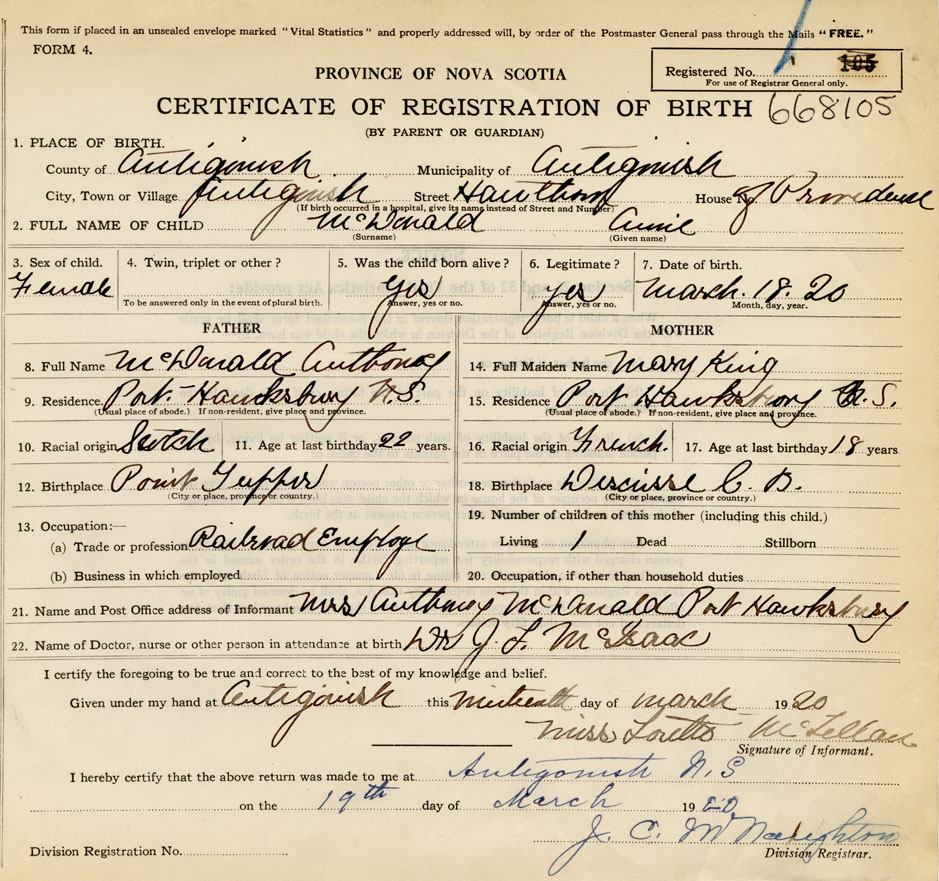 This form if placed in an unsealed envelope marked "Vital Statistics" and properly addressed will, by order of the Postmaster General pass through the Mails "FREE."
FORM 4.
Registered No. 105
For use of Registrar General only.
PROVINCE OF NOVA SCOTIA
CERTIFICATE OF REGISTRATION OF BIRTH 668105
(BY PARENT OR GUARDIAN)
1. PLACE OF BIRTH.
County of Antigonish Municipality of Antigonish
City, Town or Village Antigonish Street Hawthorn House No. of Providence
(If birth occurred in a hospital, give its name instead of Street and Number)
2. FULL NAME OF CHILD McDonald Annie
(Surname) (Given name)
3. Sex of child. 4. Twin, triplet or other? 5. Was the child born alive? 6. Legitimate? 7. Date of birth.
Female Yes Yes March. 18. 20
To be answered only in the event of plural birth. Answer, yes or no. Answer, yes or no. Month, day, year.
FATHER MOTHER
8. Full Name McDonald Anthony 14. Full Maiden Name Mary King
9. Residence Port-Hawksbury N.S. 15. Residence Port Hawksbury N.S.
(Usual place of abode.) If non-resident, give place and province. (Usual place of abode.) If non-resident, give place and province.
10. Racial origin Scotch 11. Age at last birthday 22 years. 16. Racial origin French. 17. Age at last birthday 18 years
12. Birthplace Point Tupper 18. Birthplace Descisse C. B.
(City or place, province or country.) (City or place, province or country.)
13. Occupation:— 19. Number of children of this mother (including this child.)
(a) Trade or profession Railroad Employe Living 1 Dead Stillborn
(b) Business in which employed 20. Occupation, if other than household duties
21. Name and Post Office address of Informant Mrs Anthony McDonald Port Hawksbury
22. Name of Doctor, nurse or other person in attendance at birth Dr J. L. McIsaac
I certify the foregoing to be true and correct to the best of my knowledge and belief.
Given under my hand at Antigonish this ninteenth day of march 19 20
Miss Loretto McLellan
Signature of Informant.
I hereby certify that the above return was made to me at Antigonish N.S
on the 19th day of March 19 20
J. C. McNaughton
Division Registration No. Division Registrar.